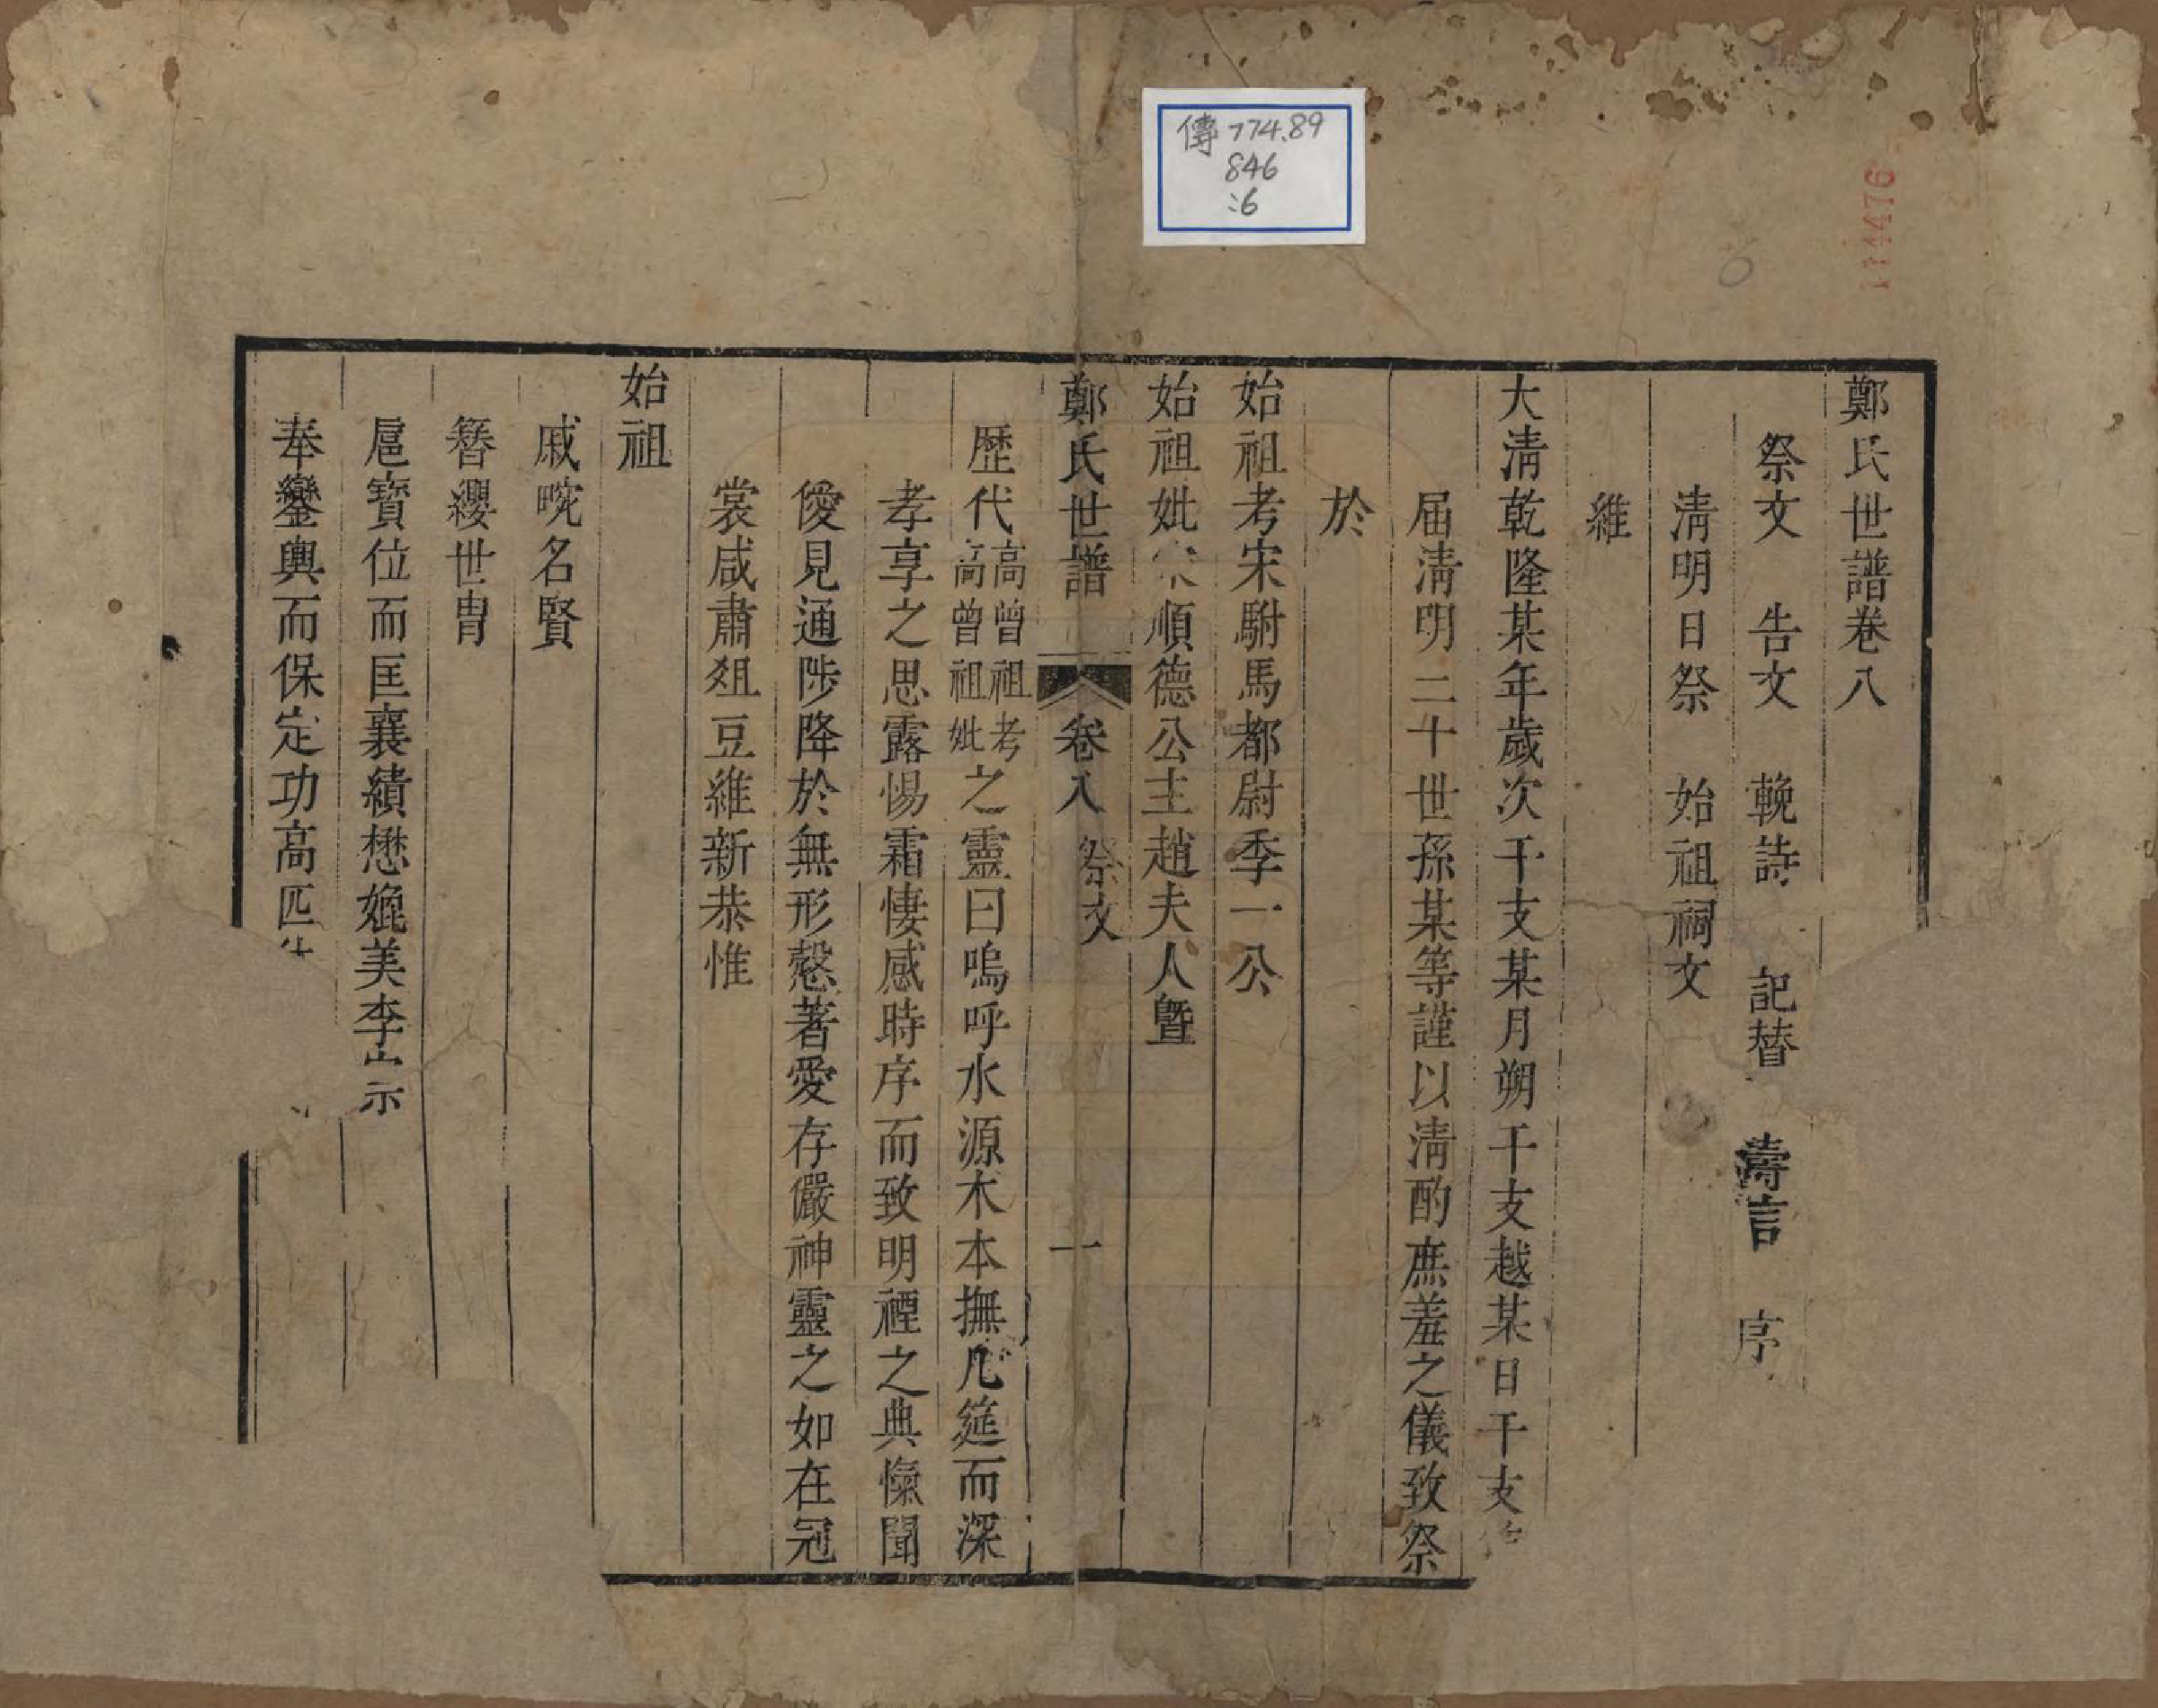 傳 774.89
846
:6
114476
鄭氏世譜卷八
祭文 告文 輓詩 記替 壽言 序
淸明日祭 始祖祠文
維
大淸乾隆某年歲次干支某月朔干支越某日干支
届淸明二十世孫某等謹以淸酌庶羞之儀致祭
於
始祖考宋駙馬都尉季一公
始祖妣宋順德公主趙夫人曁
鄭氏世譜 卷八 祭文 一
歷代高曾祖考高曾祖妣之靈曰嗚呼水源木本撫几筵而深
孝享之思露惕霜悽感時序而致明禋之典愾聞
僾見通陟降於無形慤著愛存儼神靈之如在冠
裳咸肅俎豆維新恭惟
始祖
戚畹名賢
簪纓世冑
扈寶位而匡襄績懋媲美李
奉鑾輿而保定功高匹